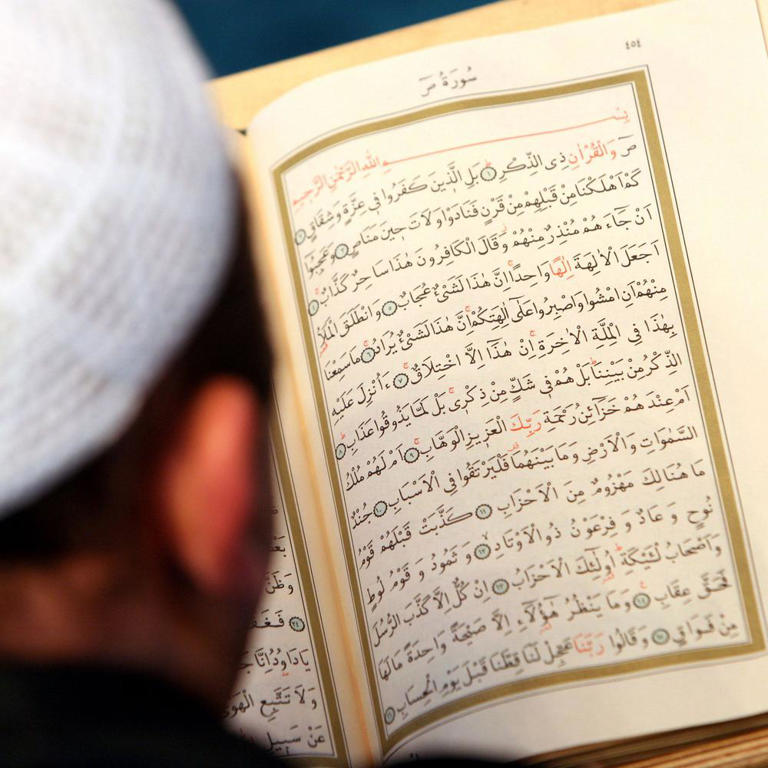 ٤٥٤
سُورَةُ صٓ
بِسْمِ اللهِ الرَّحْمٰنِ الرَّحِيمِ
صٓ وَالْقُرْاٰنِ ذِى الذِّكْرِ ١ بَلِ الَّذِينَ كَفَرُوا فِى عِزَّةٍ وَشِقَاقٍ ٢
كَمْ اَهْلَكْنَا مِنْ قَبْلِهِمْ مِنْ قَرْنٍ فَنَادَوْا وَلَاتَ حِينَ مَنَاصٍ ٣ وَعَجِبُوا
اَنْ جَاءَهُمْ مُنْذِرٌ مِنْهُمْ وَقَالَ الْكَافِرُونَ هٰذَا سَاحِرٌ كَذَّابٌ ٤
اَجَعَلَ الْاٰلِهَةَ اِلٰهًا وَاحِدًا اِنَّ هٰذَا لَشَىْءٌ عُجَابٌ ٥ وَانْطَلَقَ الْمَلَاُ
مِنْهُمْ اَنِ امْشُوا وَاصْبِرُوا عَلٰى اٰلِهَتِكُمْ اِنَّ هٰذَا لَشَىْءٌ يُرَادُ ٦ مَا سَمِعْنَا
بِهٰذَا فِى الْمِلَّةِ الْاٰخِرَةِ اِنْ هٰذَا اِلَّا اخْتِلَاقٌ ٧ ءَاُنْزِلَ عَلَيْهِ
الذِّكْرُ مِنْ بَيْنِنَا بَلْ هُمْ فِى شَكٍّ مِنْ ذِكْرِى بَلْ لَمَّا يَذُوقُوا عَذَابِ ٨
اَمْ عِنْدَهُمْ خَزَائِنُ رَحْمَةِ رَبِّكَ الْعَزِيزِ الْوَهَّابِ ٩ اَمْ لَهُمْ مُلْكُ
السَّمٰوَاتِ وَالْاَرْضِ وَمَا بَيْنَهُمَا فَلْيَرْتَقُوا فِى الْاَسْبَابِ ١٠ جُنْدٌ
مَا هُنَالِكَ مَهْزُومٌ مِنَ الْاَحْزَابِ ١١ كَذَّبَتْ قَبْلَهُمْ قَوْمُ
نُوحٍ وَعَادٌ وَفِرْعَوْنُ ذُو الْاَوْتَادِ ١٢ وَثَمُودُ وَقَوْمُ لُوطٍ
وَاَصْحَابُ لْـَٔيْكَةِ اُولٰئِكَ الْاَحْزَابُ ١٣ اِنْ كُلٌّ اِلَّا كَذَّبَ الرُّسُلَ
فَحَقَّ عِقَابِ ١٤ وَمَا يَنْظُرُ هٰؤُلَاءِ اِلَّا صَيْحَةً وَاحِدَةً مَا لَهَا
مِنْ فَوَاقٍ ١٥ وَقَالُوا رَبَّنَا عَجِّلْ لَنَا قِطَّنَا قَبْلَ يَوْمِ الْحِسَابِ ١٦
وَظَنَّ
يَادَاوُدُ اِنَّا
وَلَا تَتَّبِعِ الْهَوٰى
عَنْ سَبِيلِ